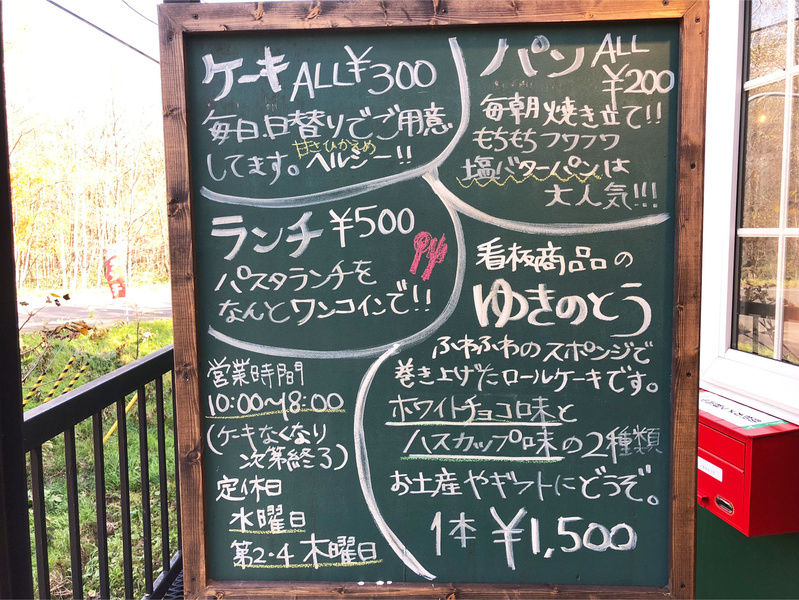 ケーキ ALL ¥300
毎日日替りでご用意
してます。甘さひかえめ
ヘルシー!!
パン ALL
¥200
毎朝焼き立て!!
もちもちフワフワ
塩バターパンは
大人気!!!
ランチ ¥500
パスタランチを
なんとワンコインで!!
看板商品の
ゆきのとう
ふわふわのスポンジで
巻き上げたロールケーキです。
ホワイトチョコ味と
ハスカップ味の2種類
お土産やギフトにどうぞ。
1本 ¥1,500
営業時間
10:00〜18:00
(ケーキなくなり
次第終了)
定休日
水曜日
第2・4 木曜日